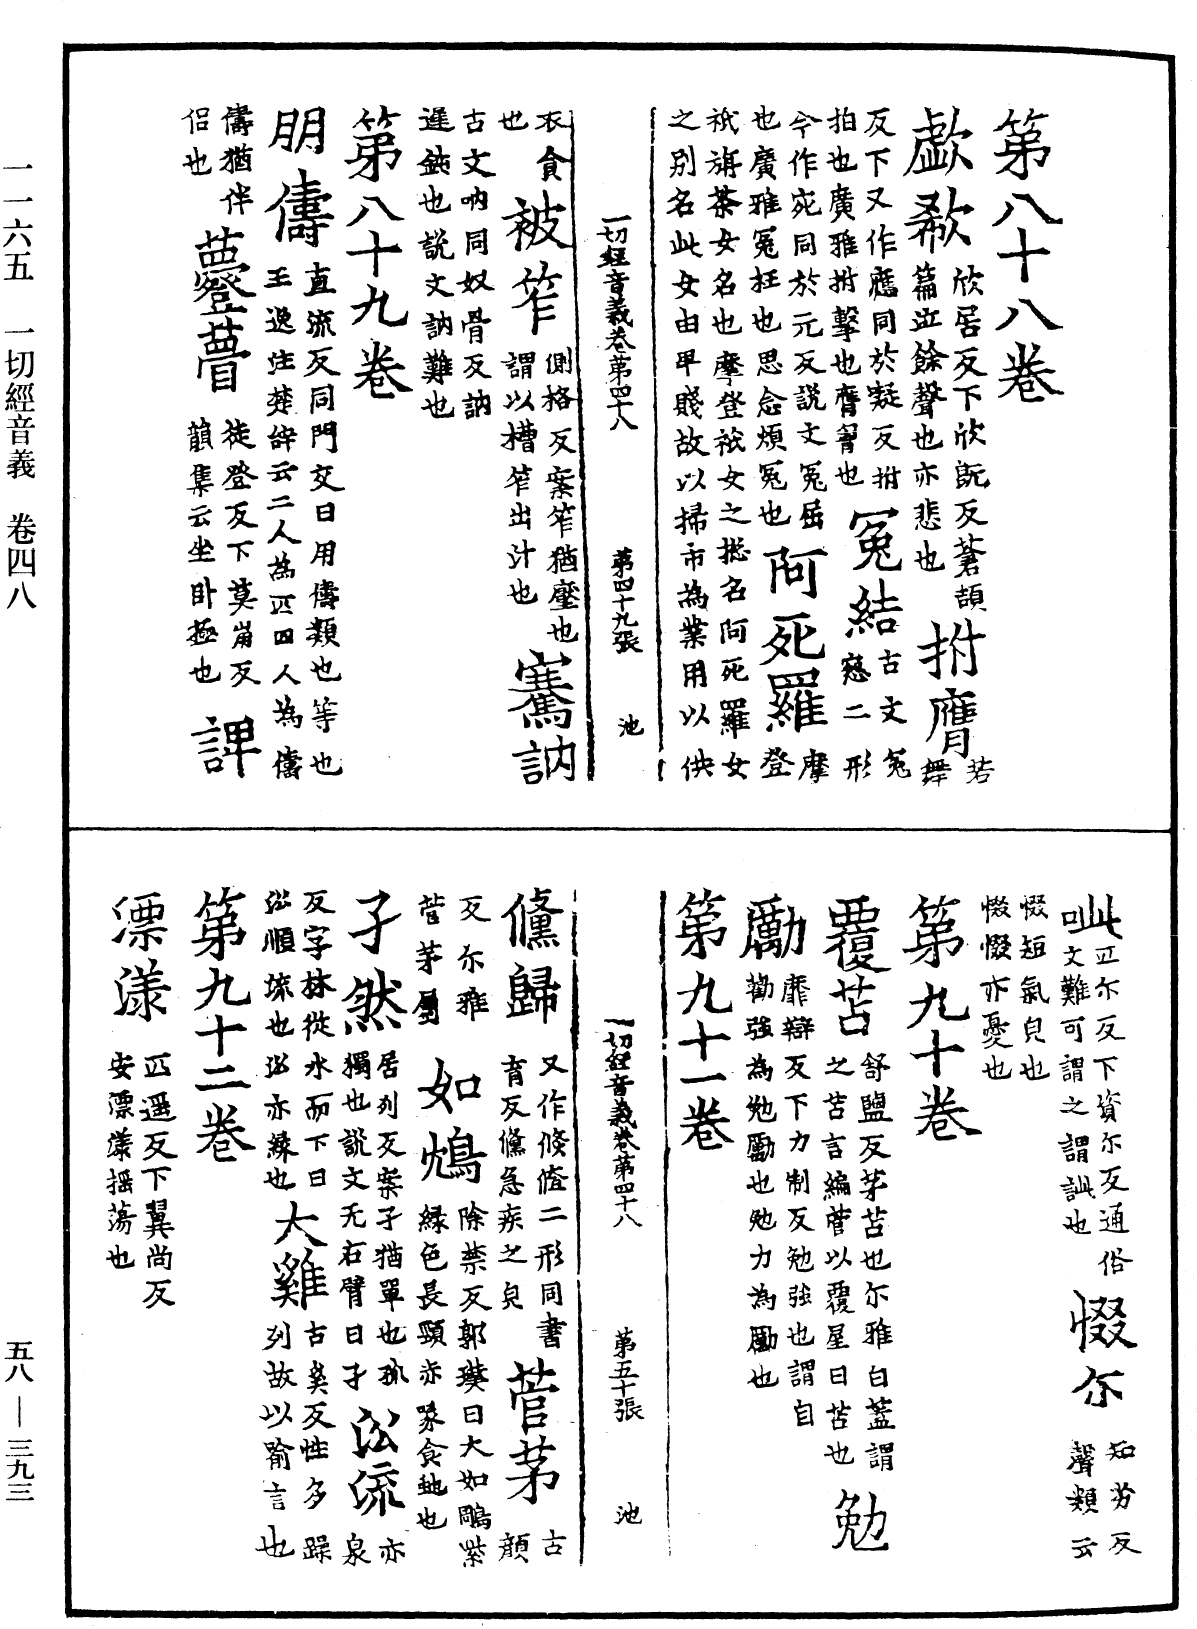 第八十八卷
歔欷 欣居反下欣既反蒼頡篇泣餘聲也亦悲也 拊膺 芳舞
反下又作䧹同於凝反拊拍也廣雅拊擊也膺胷也 冤結 古文冤𡨚二形
今作宛同於元反說文冤屈也廣雅冤枉也思念煩冤也 阿死羅 摩登
祇旃荼女名也摩登祇女之揔名阿死羅女之別名此女由卑賤故以掃市為業用以供
一切經音義卷第四十八 第四十九張 池
衣食也 被笮 側格反案笮猶壓也謂以槽笮出汁也 謇訥
古文吶同奴骨反訥遲鈍也說文訥難也
第八十九卷
朋儔 直流反同門交曰用儔類也等也王逸注楚辭云二人為匹四人為儔
儔猶伴侶也 䔲瞢 徒登反下莫崩反韻集云坐臥極也 諀
訿 匹尒反下資尒反通俗文難可謂之謂訿也 惙尒 知劣反聲類云
惙短氣皃也惙惙亦憂也
第九十卷
覆苫 舒鹽反茅苫也尒雅白蓋謂之苫言編菅以覆屋曰苫也 勉
勵 靡辯反下力制反勉強也謂自勸強為勉勵也勉力為勵也
第九十一卷
一切經音義卷第四十八 第五十張 池
儵歸 又作倏㑛二形同書育反儵急疾之皃 菅茅 古顏
反尒雅菅茅屬 如鴆 除禁反郭璞曰大如鵰紫綠色長頸赤喙食虵也
孑然 居列反案孑猶單也孤獨也說文无右臂曰孑 㳂流 亦泉
反字林從水而下曰㳂順流也㳂亦緣也 大雞 古奚反性多躁列故以喻言也
第九十二卷
漂漾 匹遥反下翼尚反安漂漾搖蕩也
一一六五 一切經音義 卷四八
五八—三九三